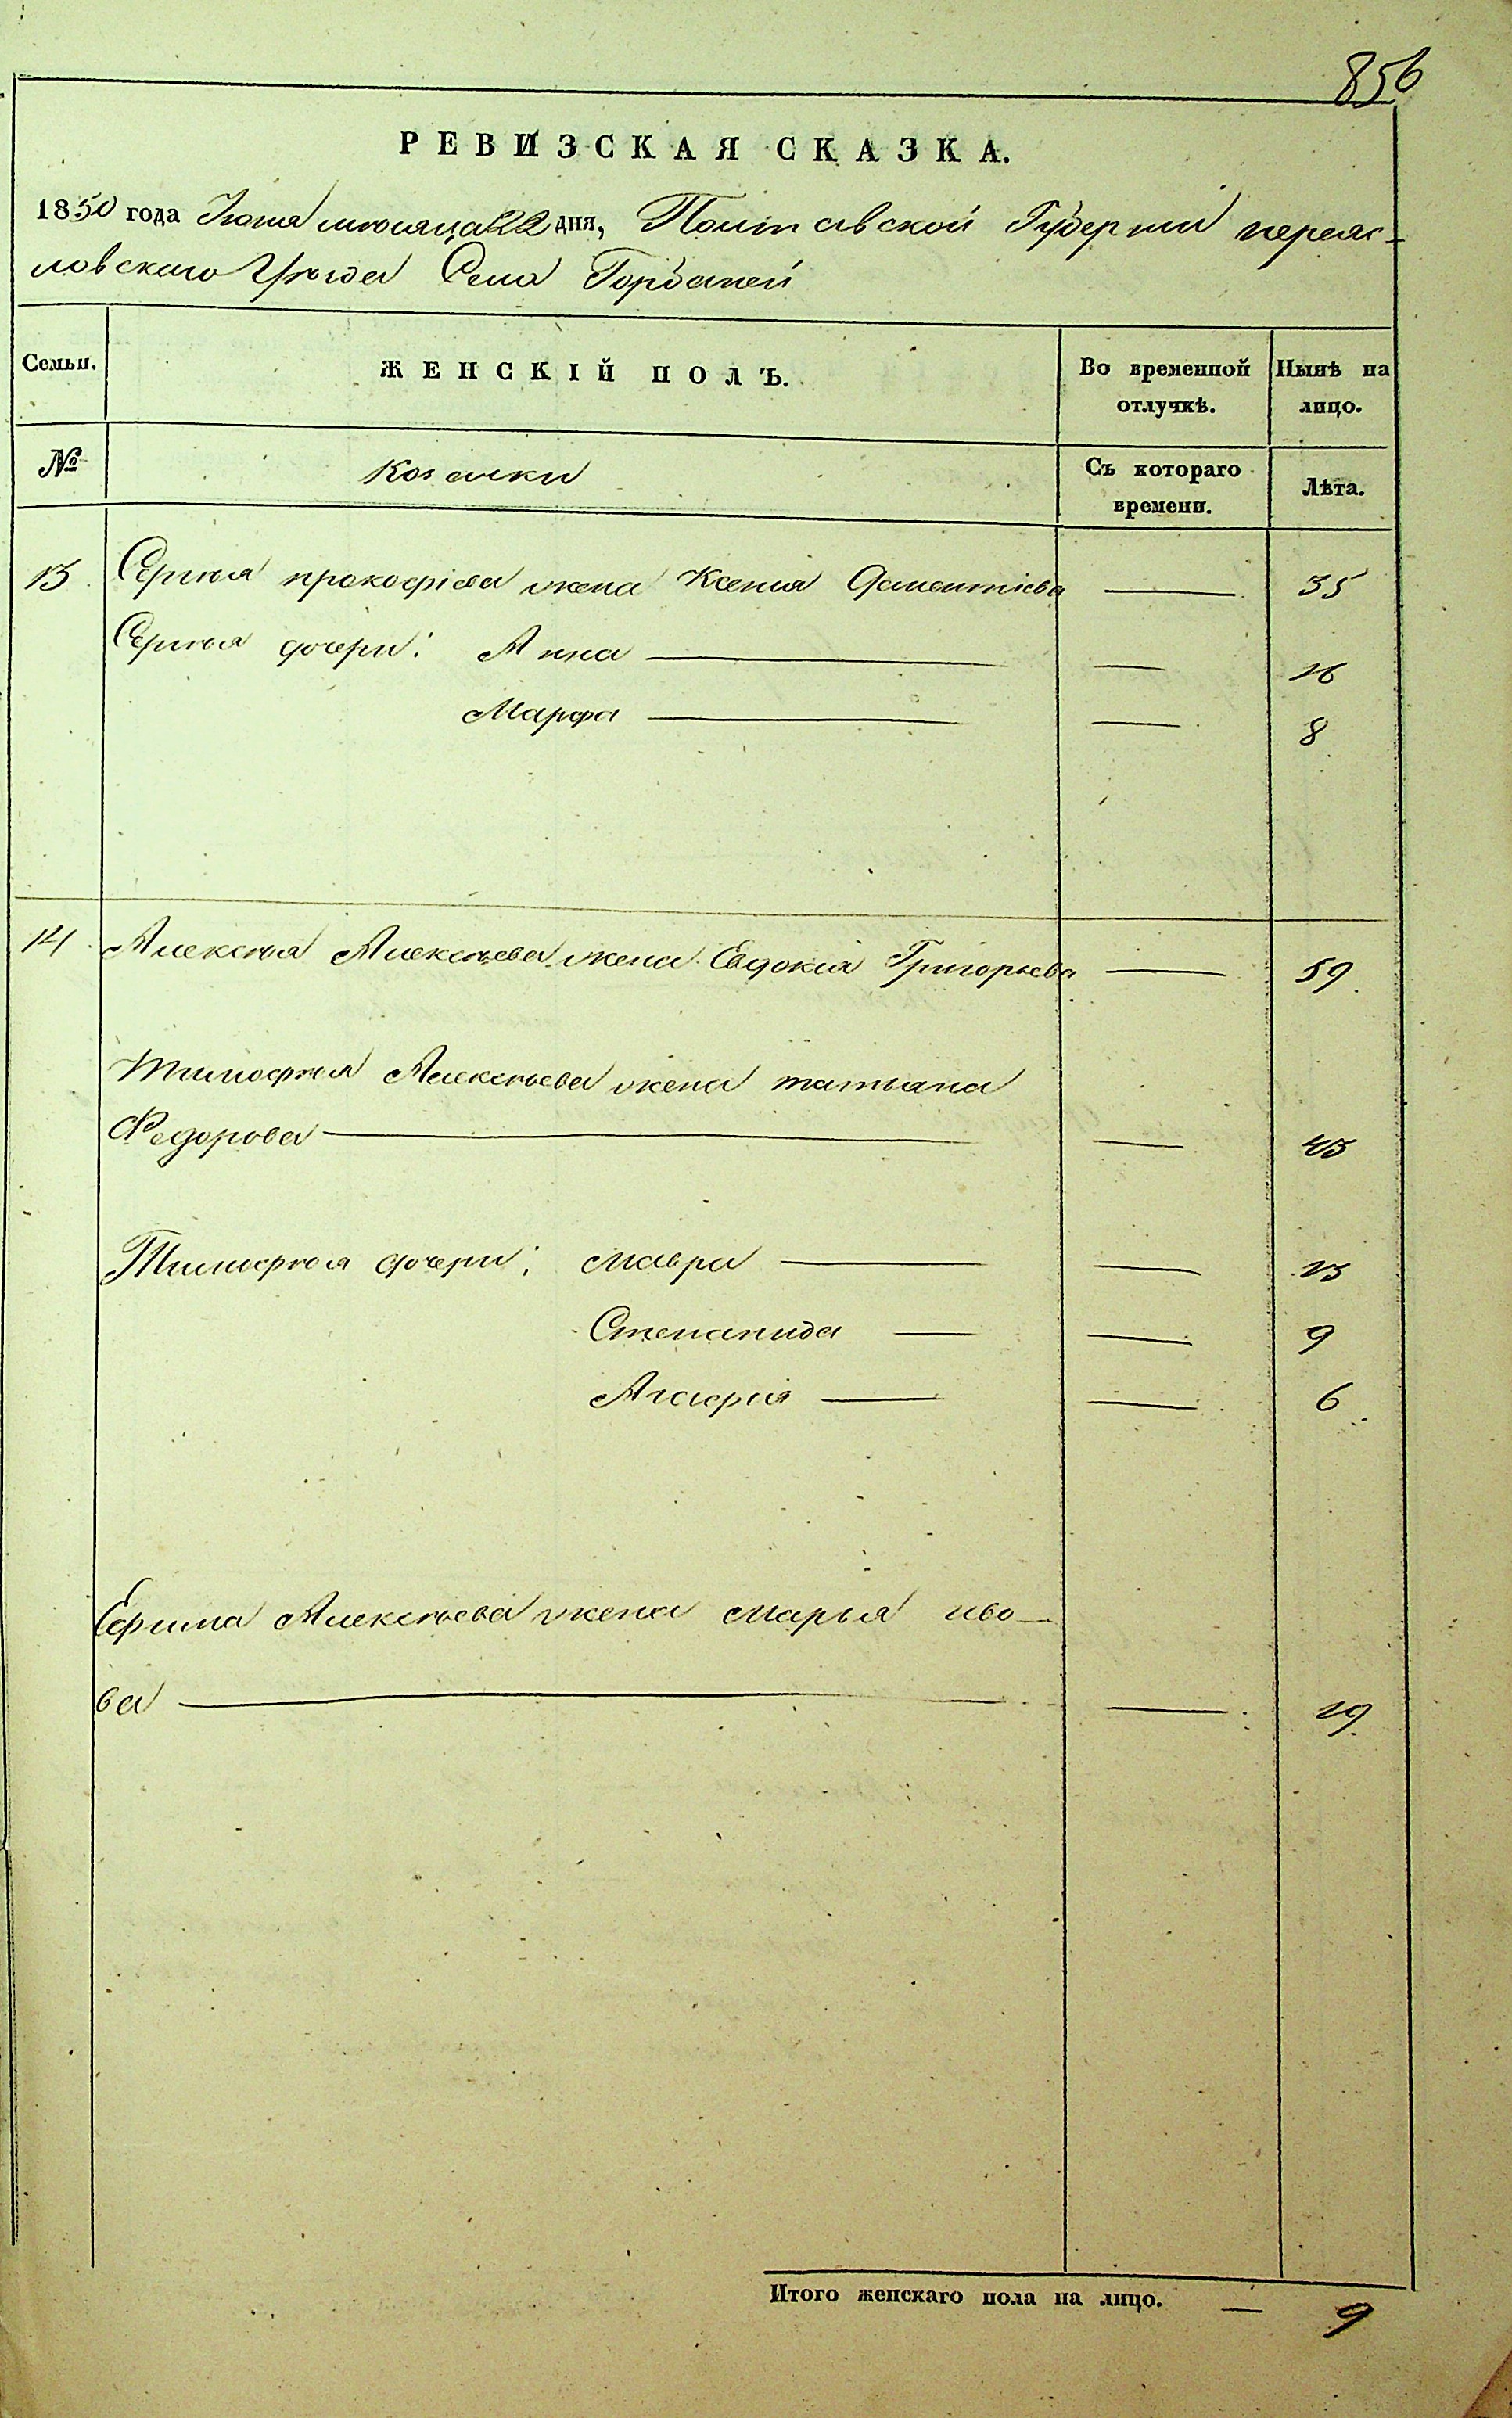 856
РЕВИЗСКАЯ СКАЗКА.
1850 года Іюня мѣсяца 22 дня, Полтавской Губерніи переяс-
ловскаго Уѣзда Села Горбаней
Семьи. ЖЕНСКІЙ ПОЛЪ. Во временной отлучкѣ. Нынѣ на лицо.
№ Козачки Съ котораго времени. Лѣта.
13 Сергѣя прокофіева жена Ксенія Дементіева — 35
Сергѣя дочери: Анна — — 16
Марфа — — 8
14 Алексѣя Алексѣева жена Евдокія Григорьева — 59
Тимофѣя Алексѣева жена татьяна
Федорова — — 43
Тимофѣя дочери: мавра — — 13
Степанида — — 9
Агафія — — 6
Ефима Алексѣева жена марья
ва — — 19
Итого женскаго пола на лицо. — 9